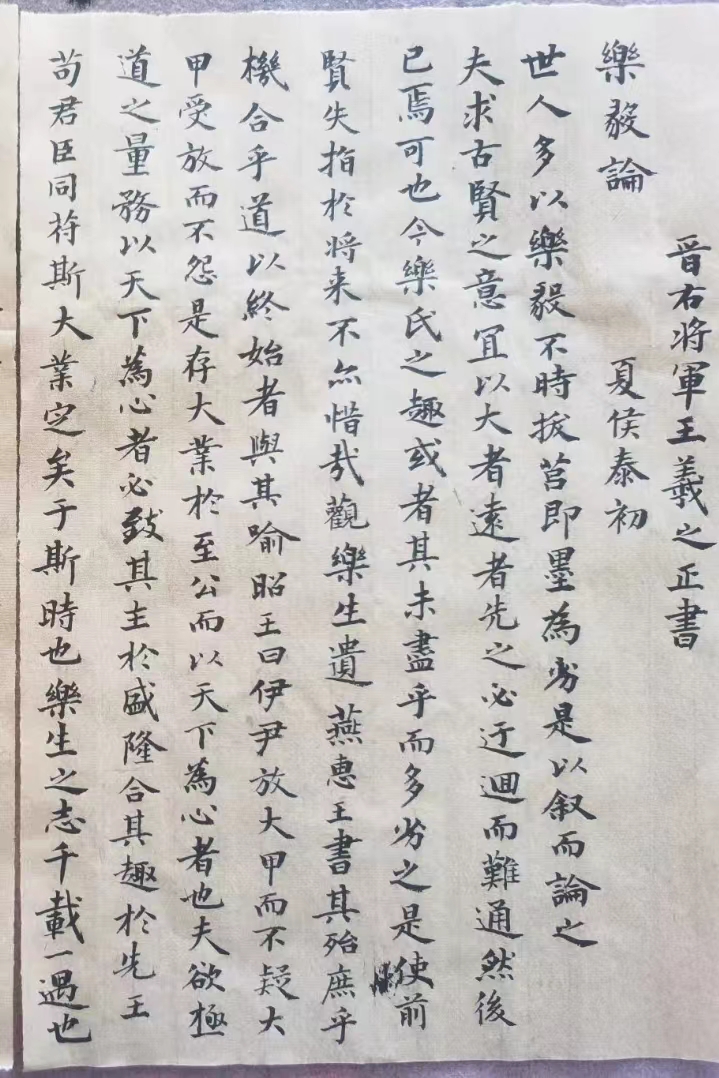 晉右將軍王羲之正書
樂毅論
夏侯泰初
世人多以樂毅不時拔莒即墨為劣是以叙而論之
夫求古賢之意宜以大者遠者先之必迂迴而難通然後
已焉可也今樂氏之趣或者其未盡乎而多劣之是使前
賢失指於将来不亦惜哉觀樂生遺燕惠王書其殆庶乎
機合乎道以終始者與其喻昭王曰伊尹放大甲而不疑大
甲受放而不怨是存大業於至公而以天下為心者也夫欲極
道之量務以天下為心者必致其主於盛隆合其趣於先王
苟君臣同符斯大業定矣于斯時也樂生之志千載一遇也